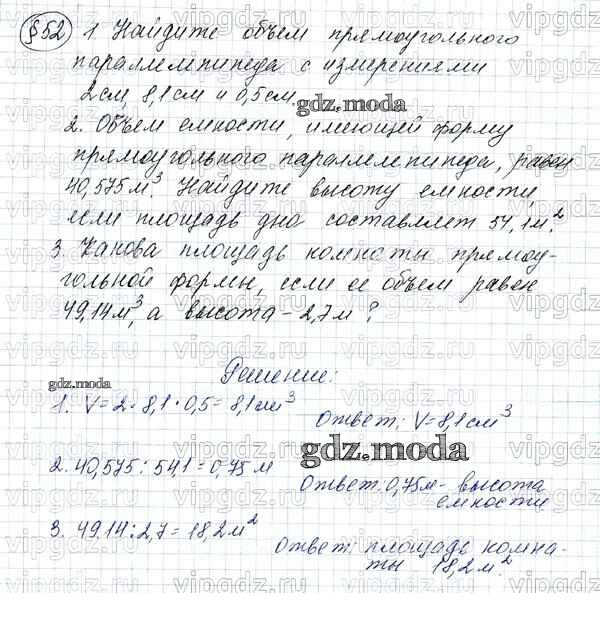 §52 1 Найдите объем прямоугольного
параллелепипеда с измерениями
2см, 8,1см и 0,5см.
gdz.moda
2. Объем емкости, имеющей форму
прямоугольного параллелепипеда, равен
40,575м³. Найдите высоту емкости,
если площадь дна составляет 54,1м².
3. Какова площадь комнаты прямоу-
гольной формы, если ее объем равен
49,14м³, а высота – 2,7м?
Решение:
gdz.moda
1. V=2·8,1·0,5=8,1см³
Ответ: V=8,1см³
gdz.moda
2. 40,575:54,1=0,75м
Ответ:0,75м- высота
емкости
3. 49.14:2,7=18,2м²
Ответ: площадь комна-
ты 18,2м².
vipgdz.ru